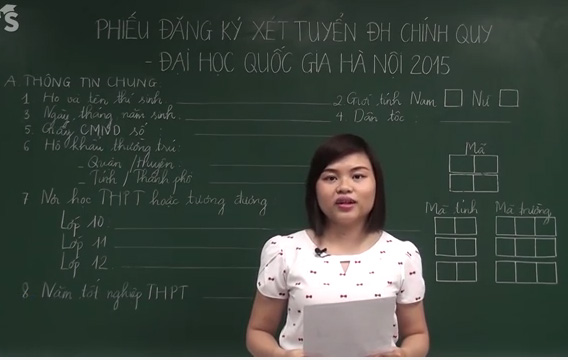 S
PHIẾU ĐĂNG KÝ XÉT TUYỂN ĐH CHÍNH QUY
- ĐẠI HỌC QUỐC GIA HÀ NỘI 2015
A. THÔNG TIN CHUNG
1 Họ và tên thí sinh 2 Giới tính Nam Nữ
3 Ngày, tháng năm sinh 4 Dân tộc :
5. Giấy CMND số :
6 Hộ khẩu thường trú: Mã
- Quận / Huyện :
- Tỉnh / Thành phố
7 Nơi học THPT hoặc tương đương Mã tỉnh Mã trường
Lớp 10
Lớp 11
Lớp 12
8 Năm tốt nghiệp THPT